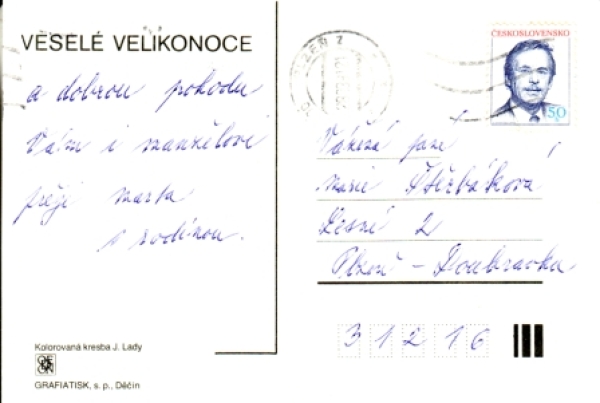 VESELÉ VELIKONOCE
a dobrou pohodu
Vám i manželovi
přeje Marta
s rodinou.
Kolorovaná kresba J. Lady
GRAFIATISK, s. p., Děčín
ČESKOSLOVENSKO
50
PLZEŇ 2
Vážená paní
Marie Štěrbáková
Lesní 2
Plzeň - Doubravka
31216